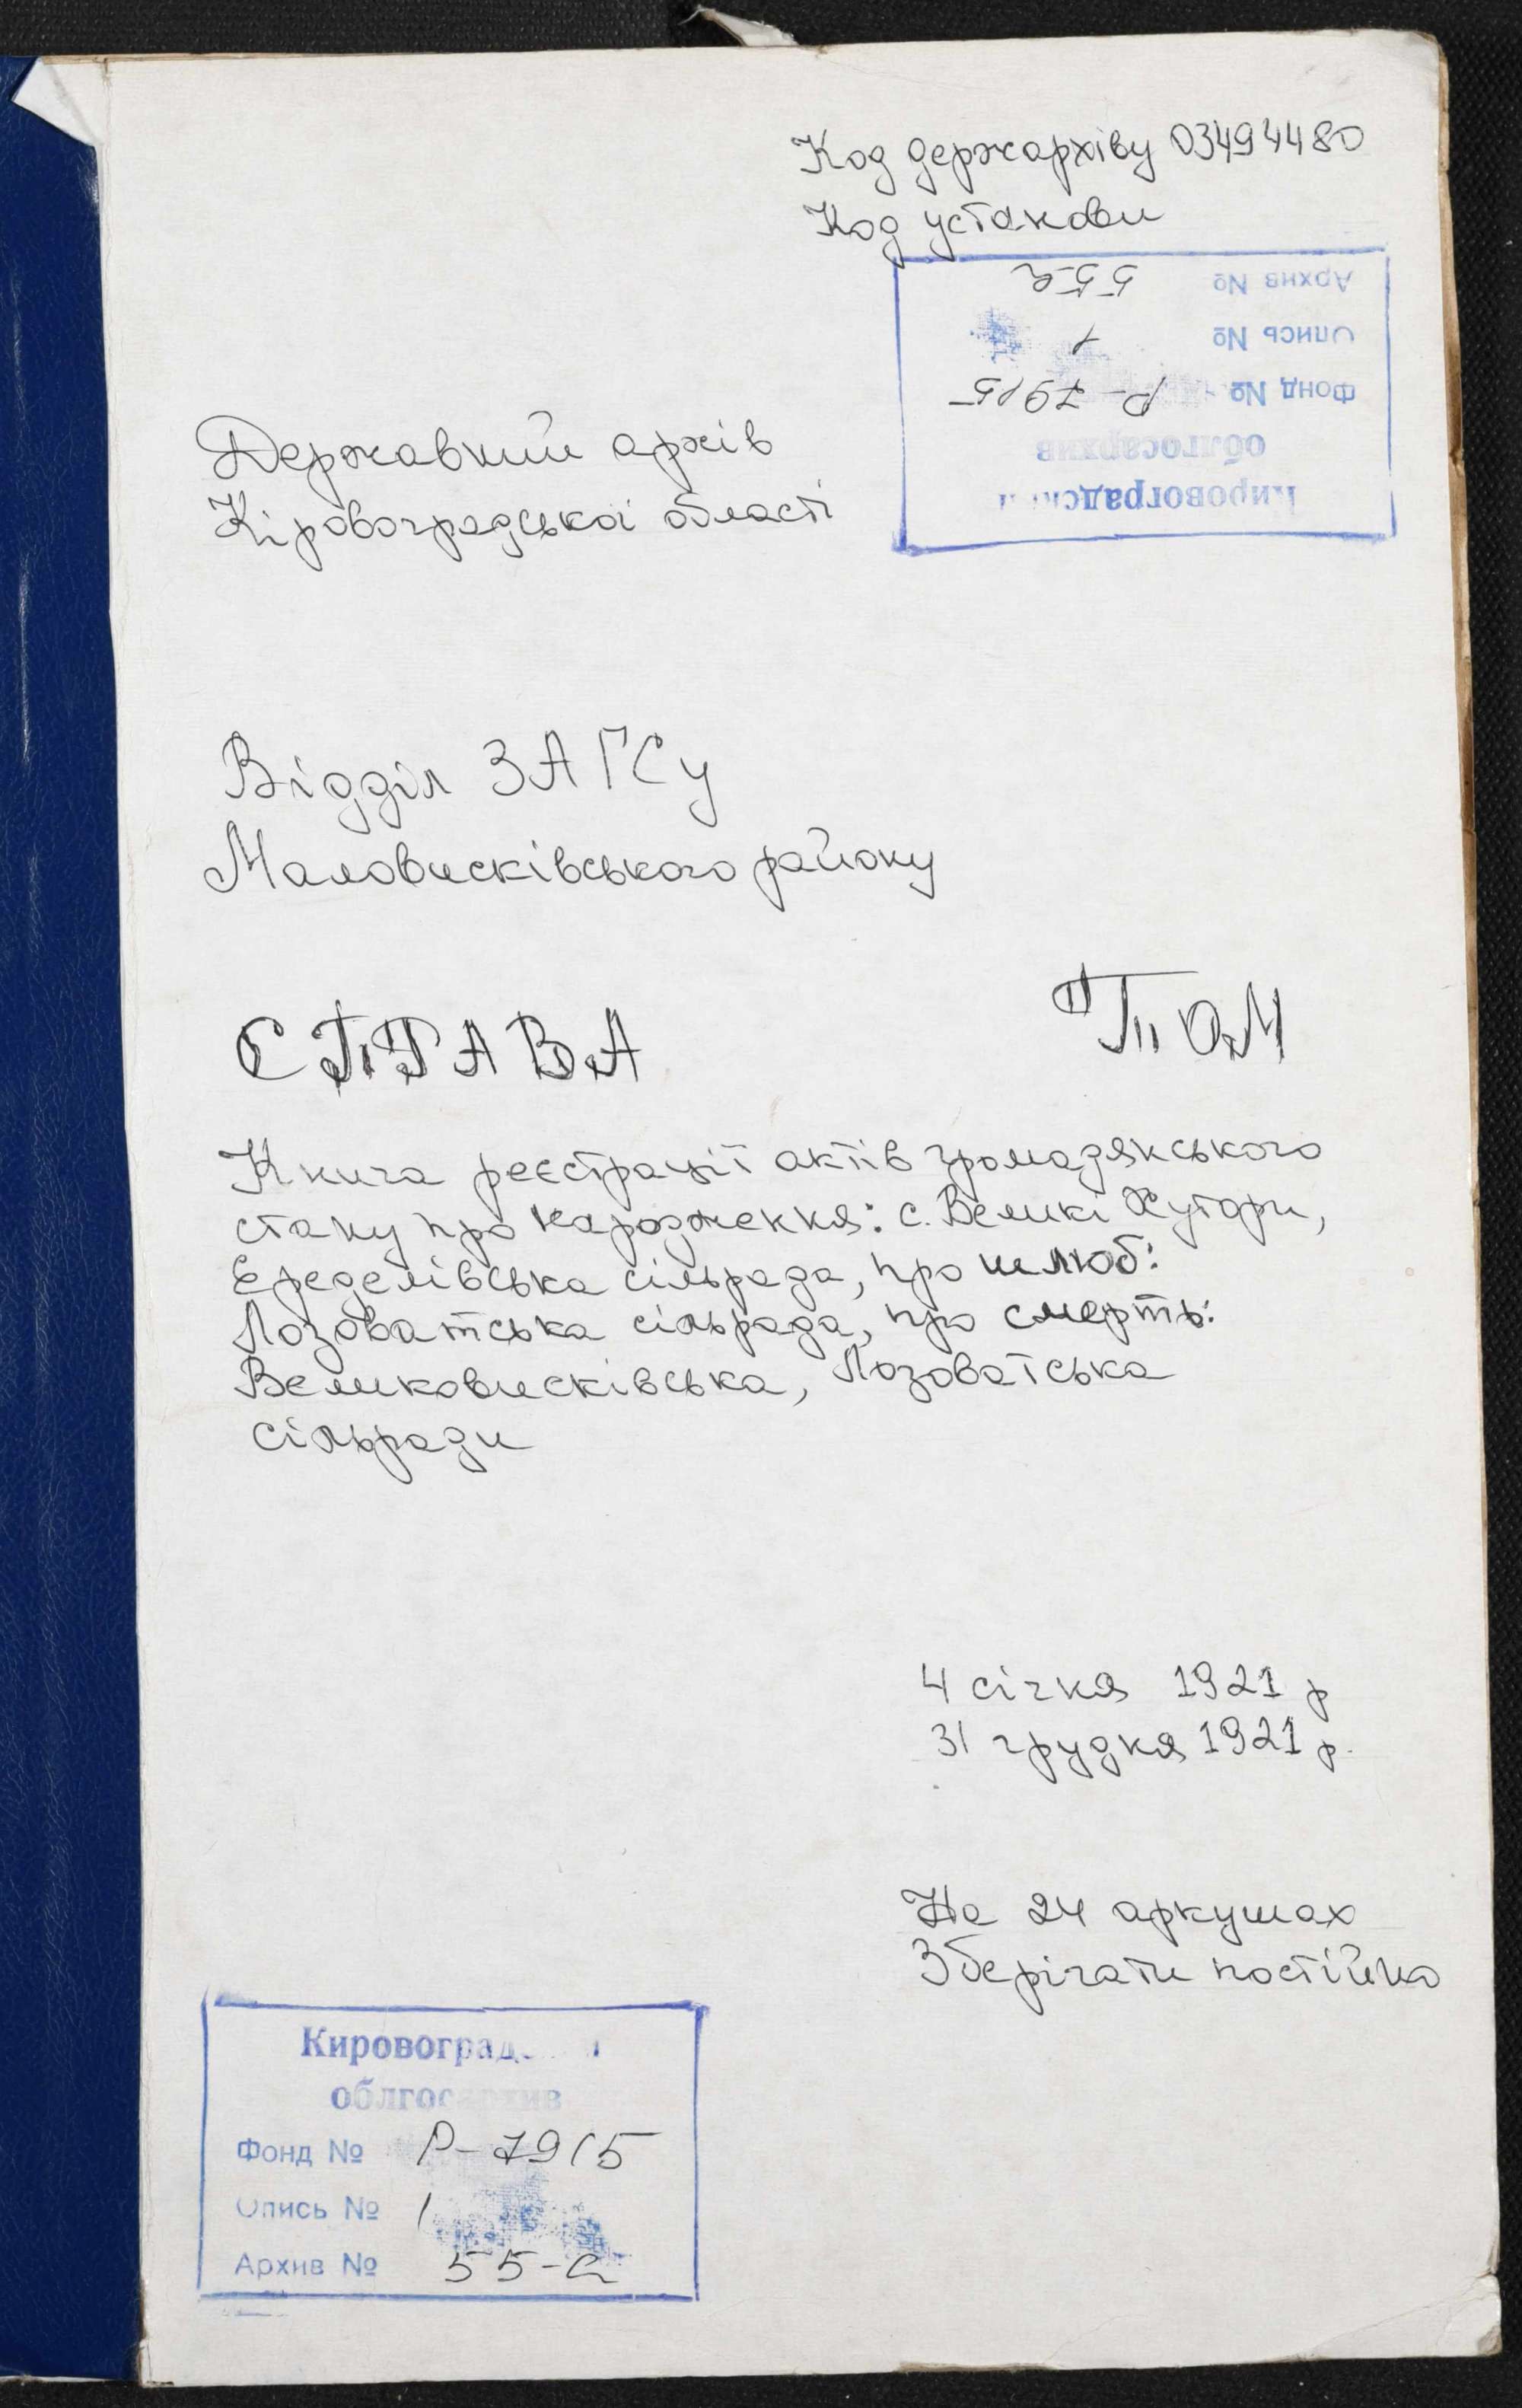 Код держархіву 03494480
Код установи
Архив № 55-а
Опись № 1
Фонд № Р-7915
облгосархив
Державний архів
Кіровоградської області
Відділ ЗАГСу
Маловисківського району
СПРАВА
ТОМ
Книга реєстрації актів громадянського
стану про народження: с. Великі Хутори,
Ерделівська сільрада, про шлюб:
Лозоватська сільрада, про смерть:
Великовисківська, Лозоватська
сільради
4 січня 1921 р
31 грудня 1921 р.
На 24 аркушах
Зберігати постійно
облгосархив
Фонд № Р-7915
Опись № 1
Архив № 55-а